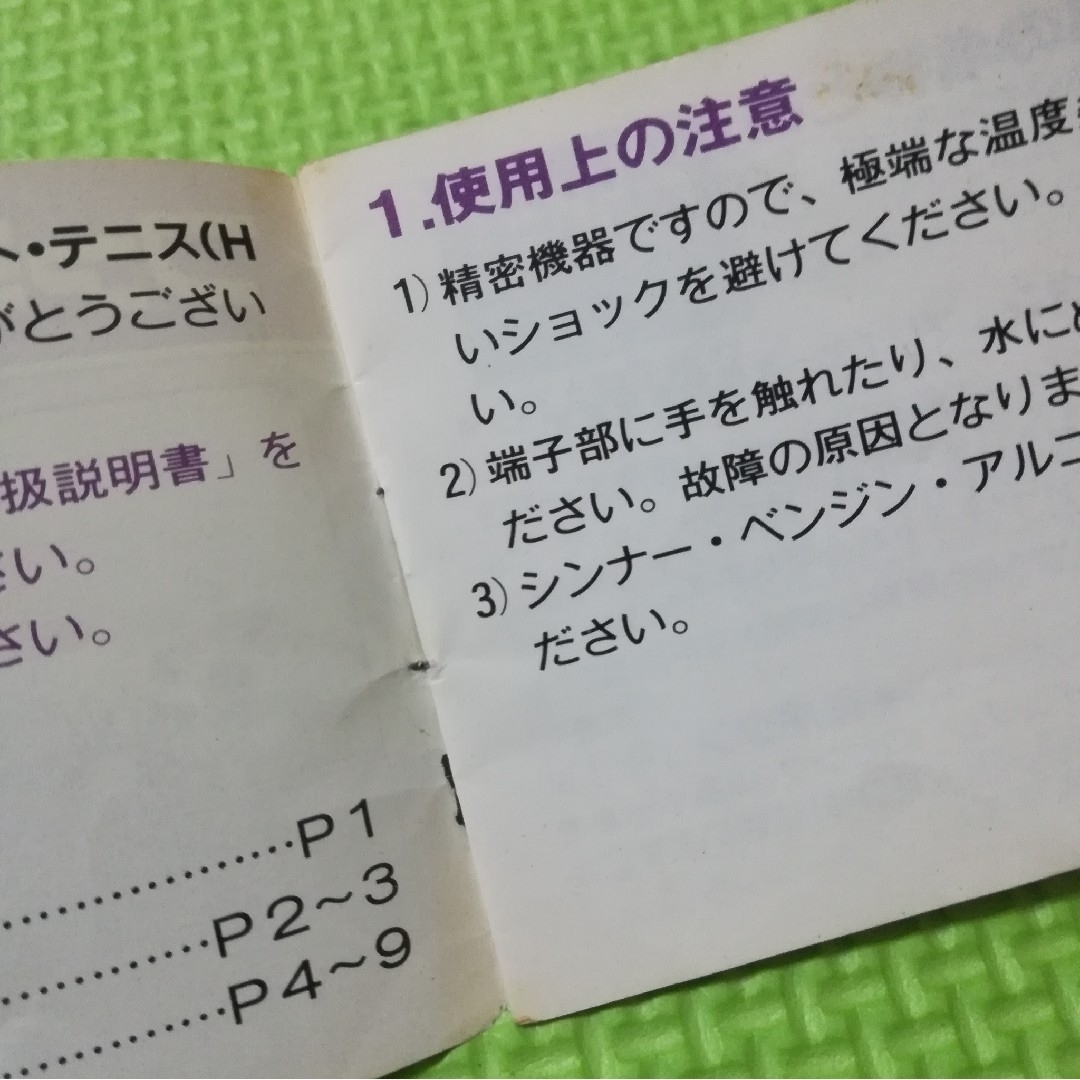 ト・テニス(H
がとうござい
扱説明書」を
さい。
さい。
P1
P2~3
P4~9
1.使用上の注意
1)精密機器ですので、極端な温度
いショックを避けてください。
い。
2)端子部に手を触れたり、水に
ださい。故障の原因となりま
3)シンナー・ベンジン・アルコ
ださい。